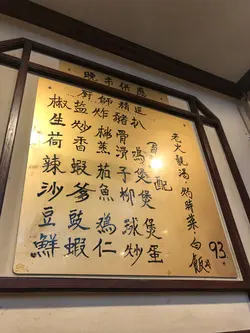 晚市供應
廚師精選
椒塩炸豬扒
生炒排骨
荷香蒸滑鷄煲
辣蝦茄子煲
沙爹魚柳煲
豆豉鷄球煲
鮮蝦仁炒蛋
配
老火靚湯·灼時菜·白飯
93元